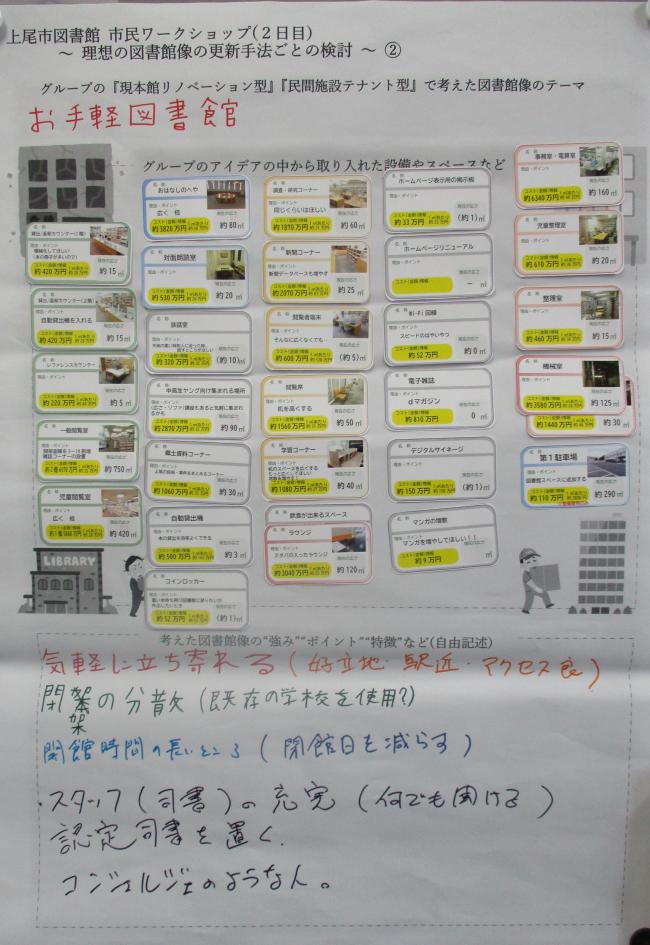 上尾市図書館 市民ワークショップ(2日目)
～ 理想の図書館像の更新手法ごとの検討 ～ ②
グループの『現本館リノベーション型』『民間施設テナント型』で考えた図書館像のテーマ
お手軽図書館
グループのアイデアの中から取り入れた設備やスペースなど
貸出/返却カウンター(1階)
約 420 万円
約 15 ㎡
貸出/返却カウンター(2階)
自動貸出機を入れる
約 420 万円
約 15 ㎡
レファレンスカウンター
約 220 万円
約 5 ㎡
一般閲覧室
約 750 ㎡
児童閲覧室
広く 倍
約 420 ㎡
おはなしのへや
広く 倍
約 3820 万円
約 80 ㎡
対面朗読室
約 530 万円
約 20 ㎡
談話室
約 320 万円
約(10)㎡
中高生ヤング向け集まれる場所
約 2870 万円
約 90 ㎡
郷土資料コーナー
約 1060 万円
約 30 ㎡
自動貸出機
本の貸出を効率よくできる
約 500 万円
約 3 ㎡
コインロッカー
約 52 万円
(約 1)㎡
調査・研究コーナー
同じくらいはほしい
約 1870 万円
約 60 ㎡
新聞コーナー
新聞データベースも増やす
約 2070 万円
約 25 ㎡
閲覧者端末
そんなに広くなくても…
約 600 万円
(約 5)㎡
閲覧席
机を高くする
約 1560 万円
約 50 ㎡
学習コーナー
約 1080 万円
約 40 ㎡
飲食が出来るスペース
ラウンジ
スタバの入ったラウンジ
約 3040 万円
約 120 ㎡
ホームページ表示用の掲示板
約 33 万円
(約 1)㎡
ホームページリニューアル
－ ㎡
Wi-Fi 回線
スピードのはやいやつ
約 52 万円
約 0 ㎡
電子雑誌
dマガジン
約 810 万円
0 ㎡
デジタルサイネージ
約 150 万円
(約 1)㎡
マンガの増数
マンガを増やしてほしい!!
約 9 万円
㎡
事務室・電算室
約 6340 万円
約 160 ㎡
児童整理室
約 610 万円
約 20 ㎡
整理室
約 460 万円
約 15 ㎡
機械室
約 3580 万円
約 125 ㎡
約 1440 万円
約 30 ㎡
第1駐車場
図書館スペースに追加する
約 110 万円
約 290 ㎡
LIBRARY
考えた図書館像の“強み”“ポイント”“特徴”など(自由記述)
気軽に立ち寄れる(好立地・駅近・アクセス良)
閉架の分散(既存の学校を使用?)
開館時間の長いところ(閉館日を減らす)
・スタッフ(司書)の充実(何でも聞ける)
認定司書を置く.
コンジェルジェのような人。